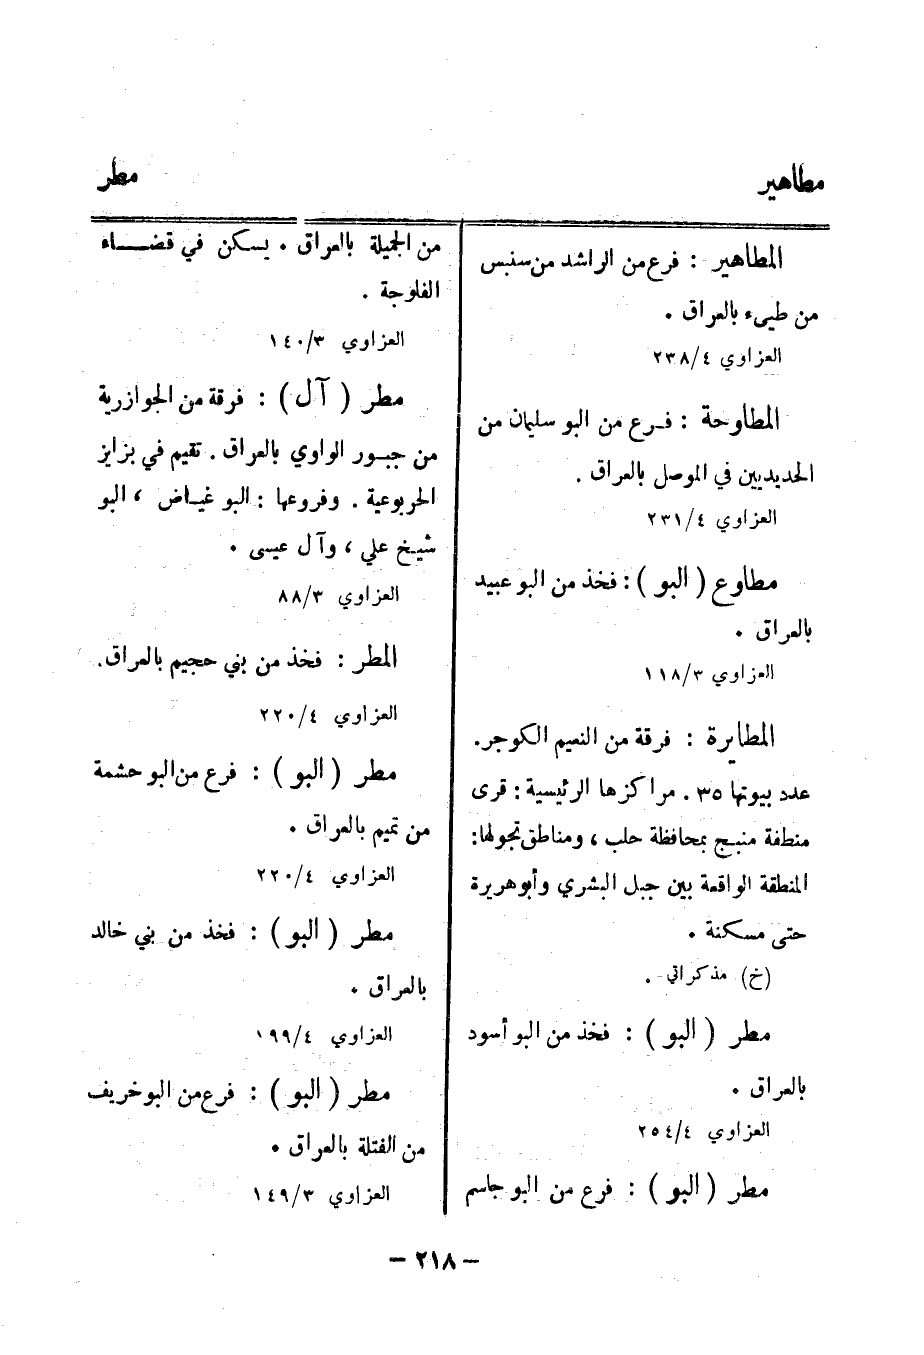 مطاهير
مطر
المطاهير : فرع من الراشد من سنبس
من طيء بالعراق .
العزاوي ٢٣٨/٤
المطاوحة : فرع من البو سليمان من
الحديديين في الموصل بالعراق .
العزاوي ٢٣١/٤
مطاوع ( البو ) : فخذ من البو عبيد
بالعراق .
العزاوي ١١٨/٣
المطايرة : فرقة من النعيم الكوجر.
عدد بيوتها ٣٥ . مراكزها الرئيسية : قرى
منطقة منبج بمحافظة حلب ، ومناطق تجولها:
المنطقة الواقعة بين جبل البشري وأبو هريرة
حتى مسكنة .
(خ) مذكراتي .
مطر ( البو ) : فخذ من البو أسود
بالعراق .
العزاوي ٢٥٤/٤
مطر ( البو ) : فرع من البو جاسم
من الجميلة بالعراق . يسكن في قضاء
الفلوجة .
العزاوي ١٤٠/٣
مطر ( آل ) : فرقة من الجوازرية
من جبور الواوي بالعراق . تقيم في بزايز
الحربوعية . وفروعها : البو غياض ، البو
شيخ علي ، وآل عيسى .
العزاوي ٨٨/٣
المطر : فخذ من بني حجيم بالعراق.
العزاوي ٢٢٠/٤
مطر ( البو ) : فرع من البو حشمة
من تميم بالعراق .
العزاوي ٢٢٠/٤
مطر ( البو ) : فخذ من بني خالد
بالعراق .
العزاوي ١٩٩/٤
مطر ( البو ) : فرع من البو خريف
من الفتلة بالعراق .
العزاوي ١٤٩/٣
– ٢١٨ –